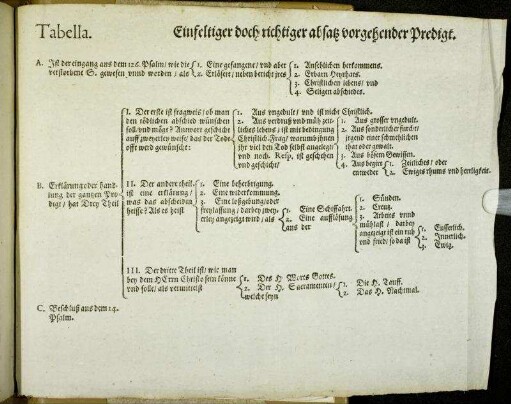 Tabella. Einfeltiger doch richtiger absatz vorgehender Predigt.
A. Ist der eingang aus dem 126. Psalm/ wie die
verstorbene S. gewesen vnnd werden/ als
1. Eine gefangene/ vnd aber
2. Erlösete/ neben bericht jres
1. Ansehlichen herkommens.
2. Erbarn Heyraths.
3. Christlichen lebens/ vnd
4. Seligen abschiedes.
B. Erklärung oder hand
lung der gantzen Pre
digt/ hat Drey Theil
I. Der erste ist fragweis/ ob man
den tödlichen abschied wünschen
soll vnd möge? Antwort geschicht
auff zweyerley weise/ das der Todt
offt werd gewünscht:
1. Aus vngedult/ vnd ist nicht Christlich.
2. Aus verdruß vnd müh zeit-
liches lebens/ ist mit bedingung
Christlich. Frag/ worumb ihnen
ihr viel den Tod selbst angelegt
vnd noch. Resp. ist geschehen
vnd geschicht/
1. Aus grosser vngedult.
2. Aus sonderlicher furcht/
jrgend einer schmehlichen
that oder gewalt.
3. Aus bösem Gewissen.
4. Aus begier
entweder
1. Zeitliches/ oder
2. Ewigs rhums vnd herrligkeit.
II. Der ander theil
ist eine erklärung/
was das abscheiden
heisse? Als es heist
1. Eine beherbrigung.
2. Eine widerkommung.
3. Eine loßgebung/ oder
freylassung/ darbey zwey-
erley angezeigt wird/ als
1. Eine Schiffahrt.
2. Eine aufflösung
aus der
1. Sünden.
2. Creutz.
3. Arbeits vnnd
mühsast/ darbey
angezeigt ist ein ruh
vnd fried/ so da ist
1. Eusserlich.
2. Innerlich.
3. Ewig.
III. Der dritte Theil ist/ wie man
bey dem HErrn Christo sein könne
vnd solle/ als vermittelst
1. Des H. Worts Gottes.
2. Der H. Sacramenten/
welche seyn
1. Die H. Tauff.
2. Das H. Nachtmal.
C. Beschluß aus dem 14.
Psalm.